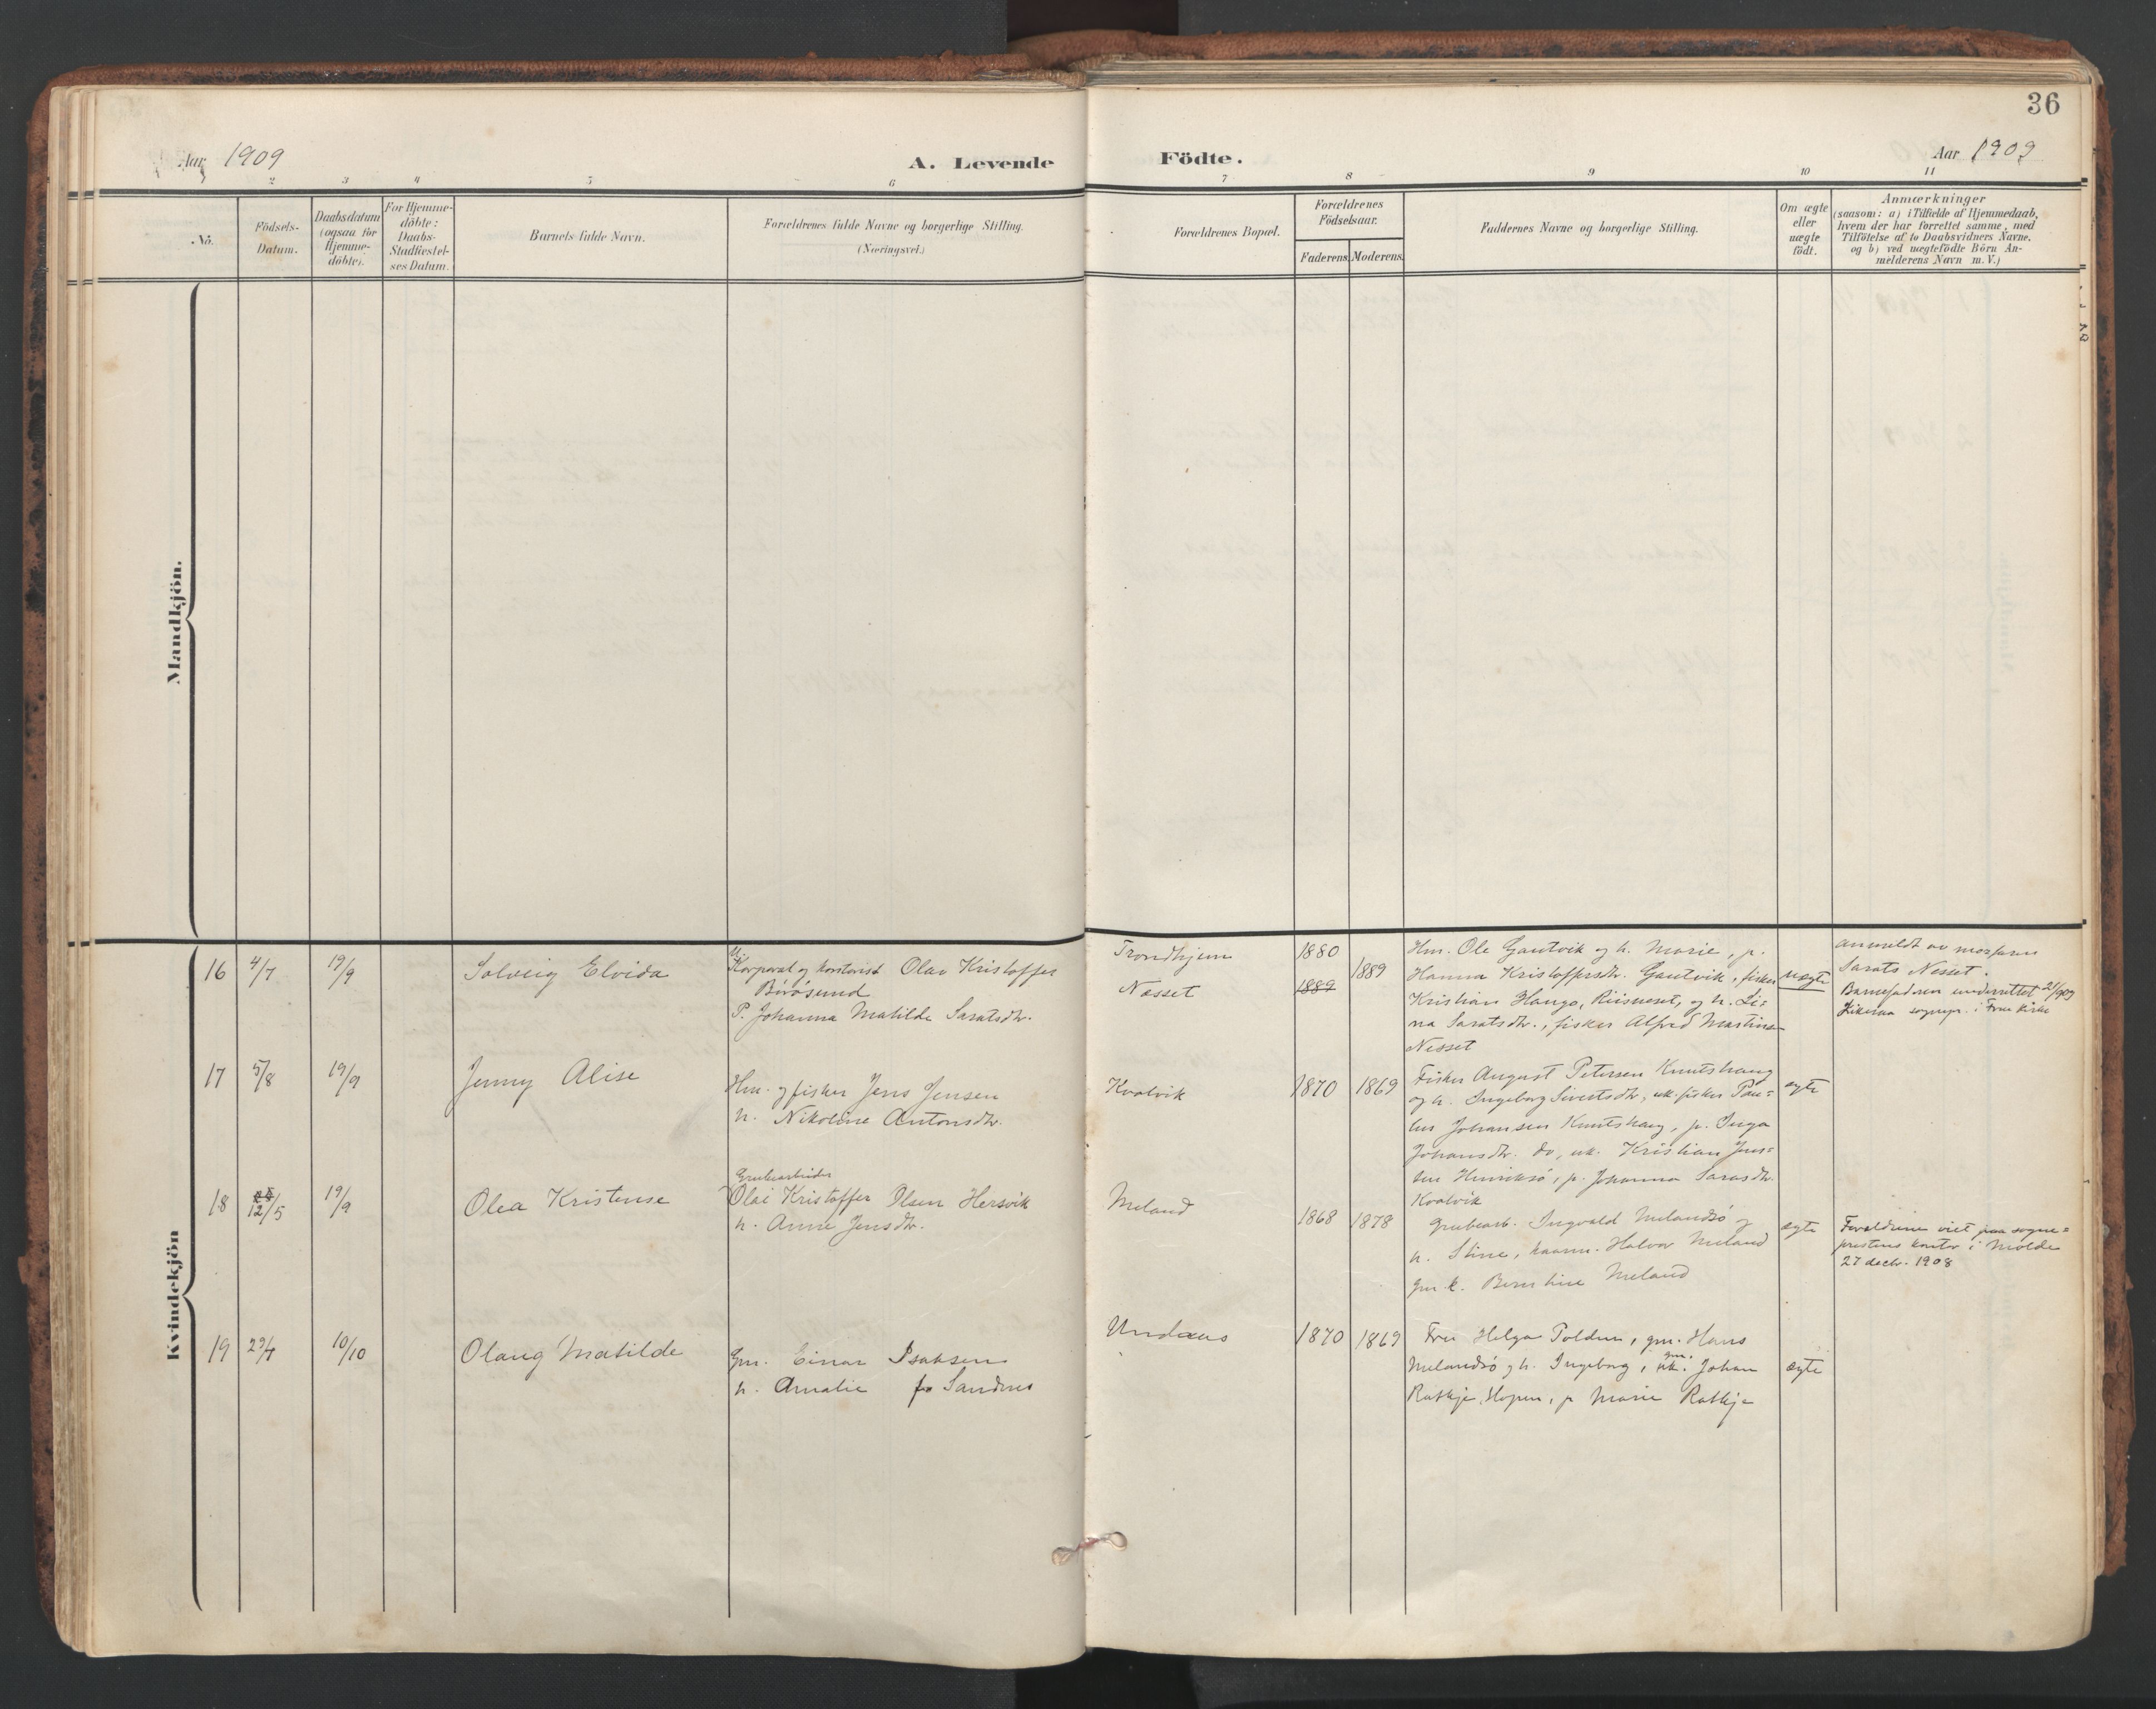 36
Aar 1909
A. Levende
Födte.
Aar 1909
1 2 3 4 5 6 7 8 9 10 11
No.
Födsels-
Datum.
Daabsdatum
(ogsaa for
Hjemme-
döbte).
For Hjemme-
döbte:
Daabs-
Stadfæstel-
ses Datum.
Barnets fulde Navn.
Forældrenes fulde Navne og borgerlige Stilling.
(Næringsvei.)
Forældrenes Bopæl.
Forældrenes
Födselsaar.
Faderens. Moderens.
Faddernes Navne og borgerlige Stilling.
Om ægte
eller
uægte
födt.
Anmærkninger
(saasom: a) i Tilfælde af Hjemmedaab,
hvem der har forrettet samme, med
Tilföielse af to Daabsvidners Navne,
og b) ved uægtefödte Börn An-
melderens Navn m. V.)
Mandkjön.
Kvindekjön
16 4/7 19/9 Solveig Elvida
Korporal og kontorist Olav Kristoffer
Börösund
P. Johanna Matilde Saratsdtr.
Trondhjem
Nesset
1880
1889
1889
Hm. Ole Gautvik og h. Marie, p.
Hanna Kristoffersdtr. Gautvik, fisker
Kristian Haugo, Riisneset, og h. Li=
na Saratsdtr., fisker Alfred Martins
Nesset
uægte
anmeldt av morfaren
Sarats Nesset.
Barnefaderen underrettet 21/909
sognepr. i Frue kirke
17 5/8 19/9 Jenny Alise
Hm. og fisker Jens Jensen
h. Nikoline Antonsdtr.
Kvalvik
1870 1869
Fisker August Petersen Knutshaug
og h. Ingeborg Sivertsdtr, uk. fisker Pau=
lus Johansen Knutshaug, p. Inga
Johansdtr. do, uk. Kristian Jens=
sen Henriksö, p. Johanna Sarasdtr.
Kvalvik
ægte
18 12/5 19/9 Olea Kristense
Grubearbeider
Olai Kristoffer Olsen Hersvik
h. Anne Jensdtr.
Meland
1868 1878
Grubearb. Ingvald Melandsö og
h. Stine, kaarm. Halvor Meland
gm k. Berntine Meland
ægte
Forældrene viet paa sogne=
prestens kontor i Molde
27 decbr. 1908
19 29/7 10/10 Olaug Matilde
Gm. Einar Isaksen
h. Amalie fr Sandnes
Undaas
1870 1869
Fru Helga Poldun, gm. Hans
Melandsö og h. Ingeborg, gm. Johan
Ratkje, Hopen, p Marie Ratkje
ægte